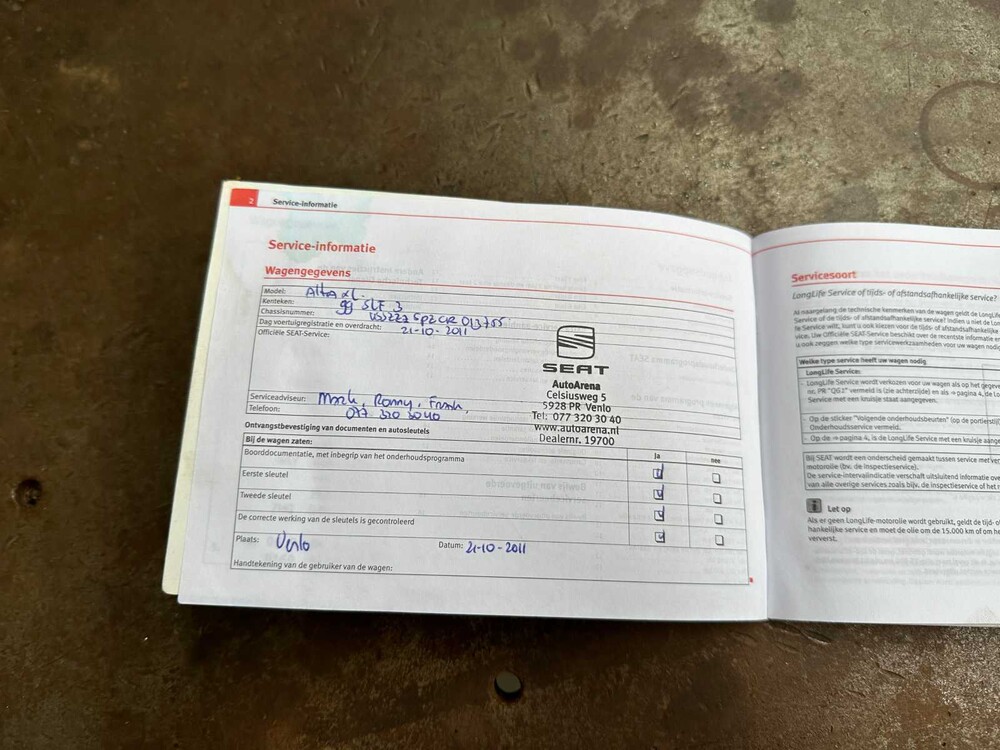 2 Service-informatie
Service-informatie
Wagengegevens
Model: Altea XL.
Kenteken: 99 SLF 3
Chassisnummer:
Dag voertuigregistratie en overdracht: 21-10-2011
Officiële SEAT-Service:
SEAT
AutoArena
Celsiusweg 5
5928 PR Venlo
Tel: 077 320 30 40
www.autoarena.nl
Dealernr. 19700
Serviceadviseur: Mark, Ronny, Frank,
Telefoon: 077 320 3040
Ontvangstbevestiging van documenten en autosleutels
Bij de wagen zaten: ja nee
Boorddocumentatie, met inbegrip van het onderhoudsprogramma
Eerste sleutel
Tweede sleutel
De correcte werking van de sleutels is gecontroleerd
Plaats: Venlo Datum: 21-10-2011
Handtekening van de gebruiker van de wagen:
Servicesoort
LongLife Service of tijds- of afstandsafhankelijke service?
Als naargelang de technische kenmerken van de wagen geldt de LongLife
Service of de tijds- of afstandsafhankelijke service! Indien u niet de
Service wilt, kunt u ook kiezen voor de tijds- of afstandsafhankelijke
vice. Uw Officiële SEAT-Service beschikt over de recentste informatie en
u ook zeggen welke type servicewerkzaamheden voor uw wagen nodig
Welke type service heeft uw wagen nodig
LongLife Service:
- LongLife Service wordt verkozen voor uw wagen als op het
nr. PR "QG1" vermeld is (zie achterzijde) en als ⇒ pagina 4, de
Service met een kruisje staat aangegeven.
- Op de sticker "Volgende onderhoudsbeurten" (op de
Onderhoudsservice vermeld.
- Op de ⇒ pagina 4, is de LongLife Service met een kruisje
Bij SEAT wordt een onderscheid gemaakt tussen service met
motorolie (bv. de inspectieservice).
De service-intervalindicatie verschaft uitsluitend informatie over
van alle overige services zoals bijv. de inspectieservice of het
i Let op
Als er geen LongLife-motorolie wordt gebruikt, geldt de tijd-
hankelijke service en moet de olie om de 15.000 km of om
ververst.